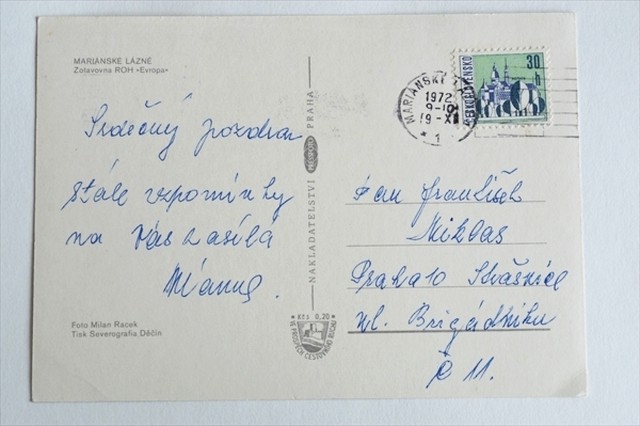 MARIÁNSKÉ LÁZNĚ
Zotavovna ROH »Evropa«
Srdečný pozdrav
stále vzpomínky
na Vás zasílá
Foto Milan Racek
Tisk Severografia Děčín
NAKLADATELSTVÍ PRESSFOTO PRAHA
Kčs 0,20
VE PROSPĚCH CESTOVNÍHO RUCHU
MARIÁNSKÉ
1972
9-10
19-XI
1
30
h
ČESKOSLOVENSKO
Pan František
Miklas
Praha 10 Strašnice
ul. Brigádníků
č 11.